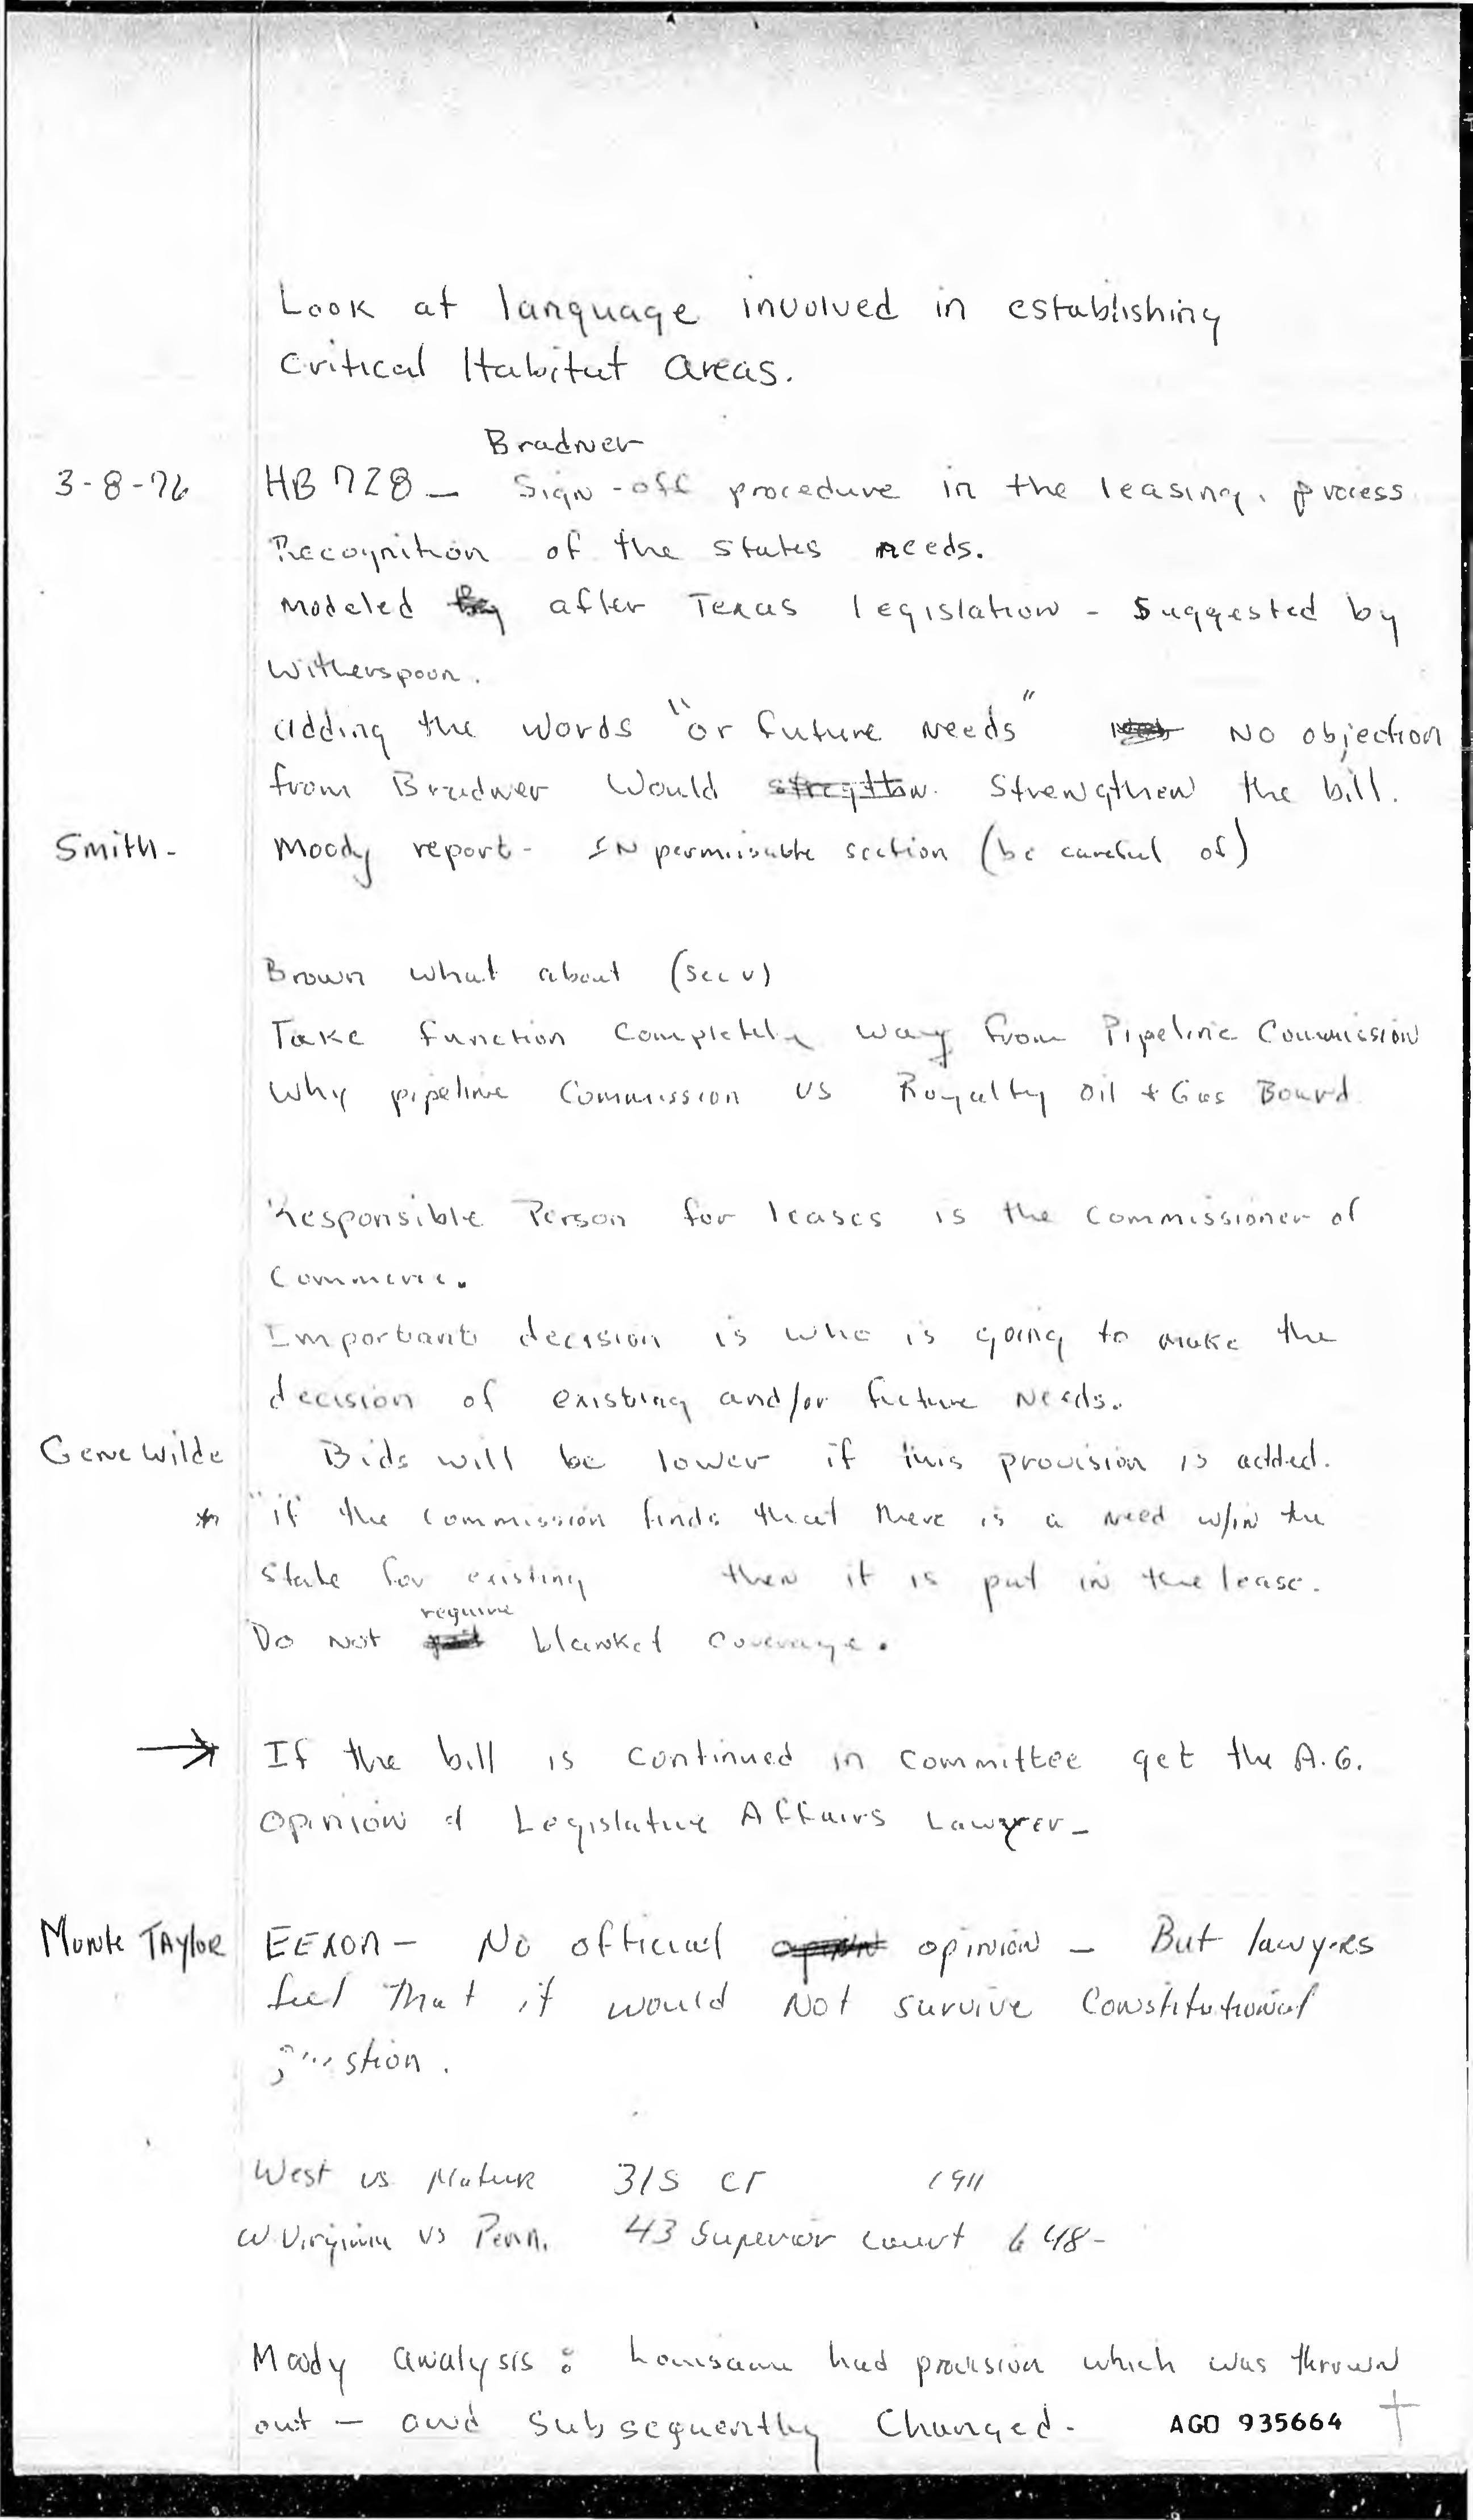 Look at language involved in establishing
Critical Habitat areas.
Bradner
3-8-76 HB 728 - Sign-off procedure in the leasing process
Recognition of the states needs.
Modeled after Texas legislation - Suggested by
Witherspoon.
adding the words "or future needs" No objection
from Bradner Would Strengthen the bill.
Smith- Moody report - IN permissable section (be careful of)
Brown what about (sec v)
Take function completely way from Pipeline Commission
Why pipeline Commission vs Royalty Oil + Gas Board
Responsible Person for leases is the Commissioner of
Commerce.
Important decision is who is going to make the
decision of existing and/or future needs.
Gene Wilde Bids will be lower if this provision is added.
* "if the commission finds that there is a need w/in the
State for existing then it is put in the lease.
require
Do not blanket coverage.
→ If the bill is continued in committee get the A.G.
Opinion of Legislative Affairs Lawyer-
Monte TAylor EEXON - No official opinion - But lawyers
feel that it would Not survive Constitutional
question.
West vs 1911
W. Virginia vs Penn. 43 Superior Court 648-
Moody analysis: had provision which was thrown
out - and subsequently changed.
AGO 935664